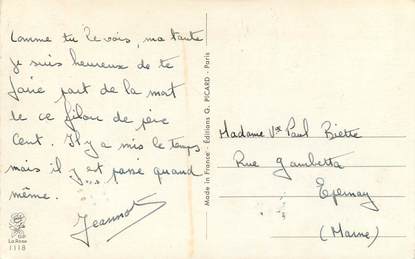 Comme tu le vois, ma tante
je suis heureux de te
faire part de la mort
de ce filou de père
Cent. Il y a mis le temps
mais il y est passé quand
même.
Jeannot
La Rose
1118
Made in France - Éditions G. PICARD - Paris
Madame Vve Paul Biette
Rue Gambetta
Epernay
(Marne)